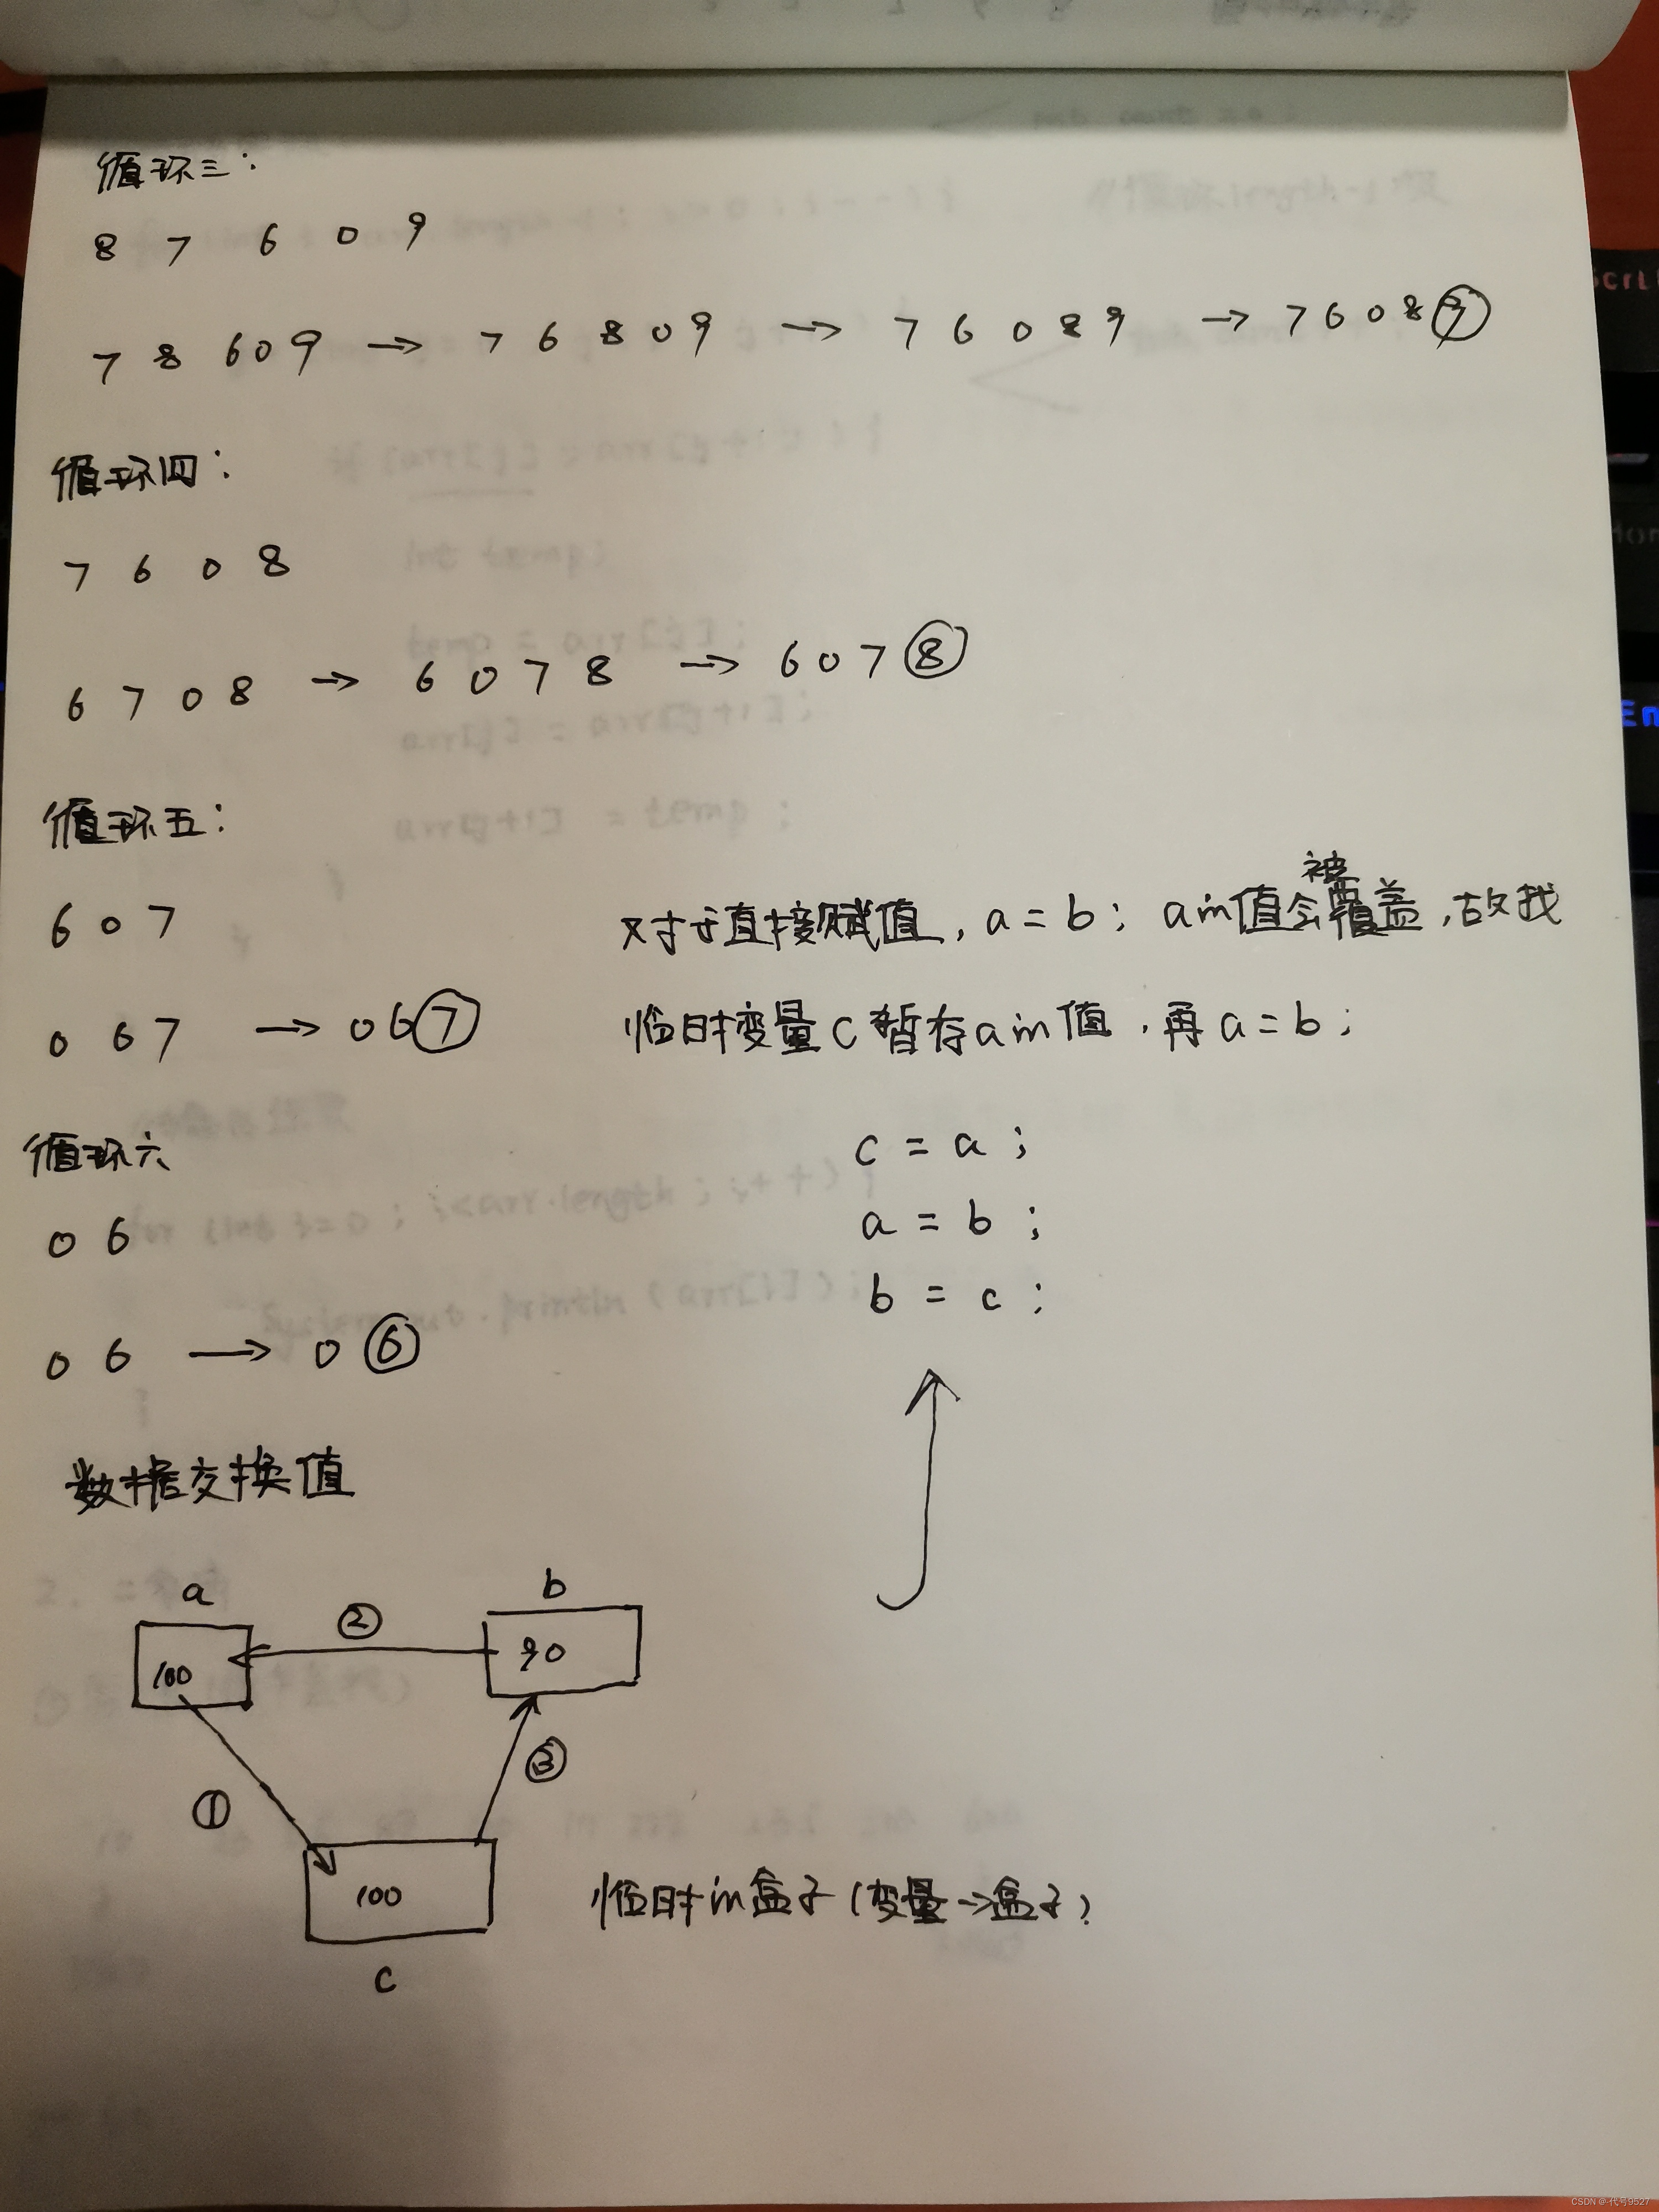 循环三:
8 7 6 0 9
7 8 6 0 9 → 7 6 8 0 9 → 7 6 0 8 9 → 7 6 0 8 9
循环四:
7 6 0 8
6 7 0 8 → 6 0 7 8 → 6 0 7 8
循环五:
6 0 7
对于直接赋值, a = b; a的值会被覆盖,故找
0 6 7 → 0 6 7
临时变量C暂存a的值,再a=b;
循环六
c = a ;
0 6
a = b ;
b = c ;
0 6 → 0 6
数据交换值
a
b
②
100
90
③
①
100
临时的盒子(变量→盒子)
c
ScrL
En
CSDN @-代号9527